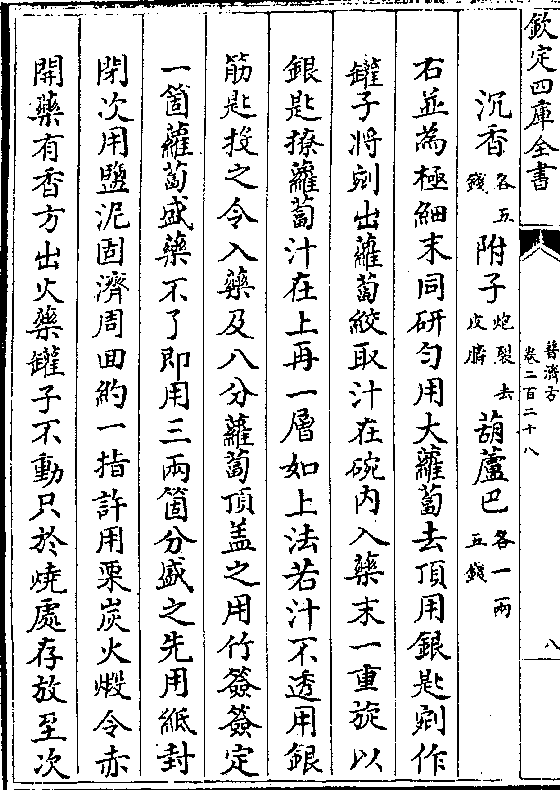 欽定四庫全書
普濟方
卷二百二十八
八
沉香各五錢 附子炮裂去皮臍 葫蘆巴各一兩五錢
右並為極細末同研匀用大蘿蔔去頂用銀匙剜作
罐子將剜出蘿蔔絞取汁在碗内入藥末一重旋以
銀匙撩蘿蔔汁在上再一層如上法若汁不透用銀
筯匙投之令入藥及八分蘿蔔頂盖之用竹簽簽定
一箇蘿蔔盛藥不了即用三兩箇分盛之先用紙封
閉次用鹽泥固濟周回約一指許用栗炭火煅令赤
開藥有香方出火藥罐子不動只於燒處存放至次